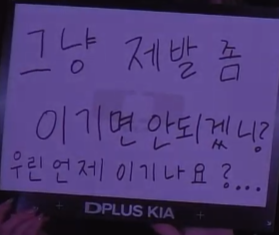 그냥 제발 좀
이기면 안되겠니?
우린 언제 이기나요?...
DPLUS KIA